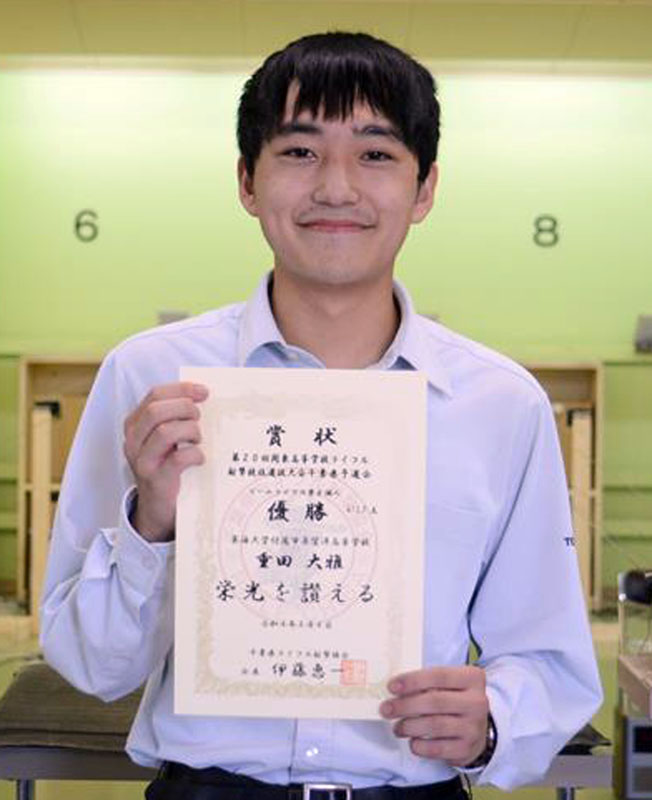 6
8
賞状
第20回関東高等学校ライフル
射撃競技選抜大会千葉県予選会
ビームライフル男子個人
優勝
東海大学付属市原望洋高等学校
重田 大雅
栄光を讃える
千葉県ライフル射撃協会
会長 伊藤惠一